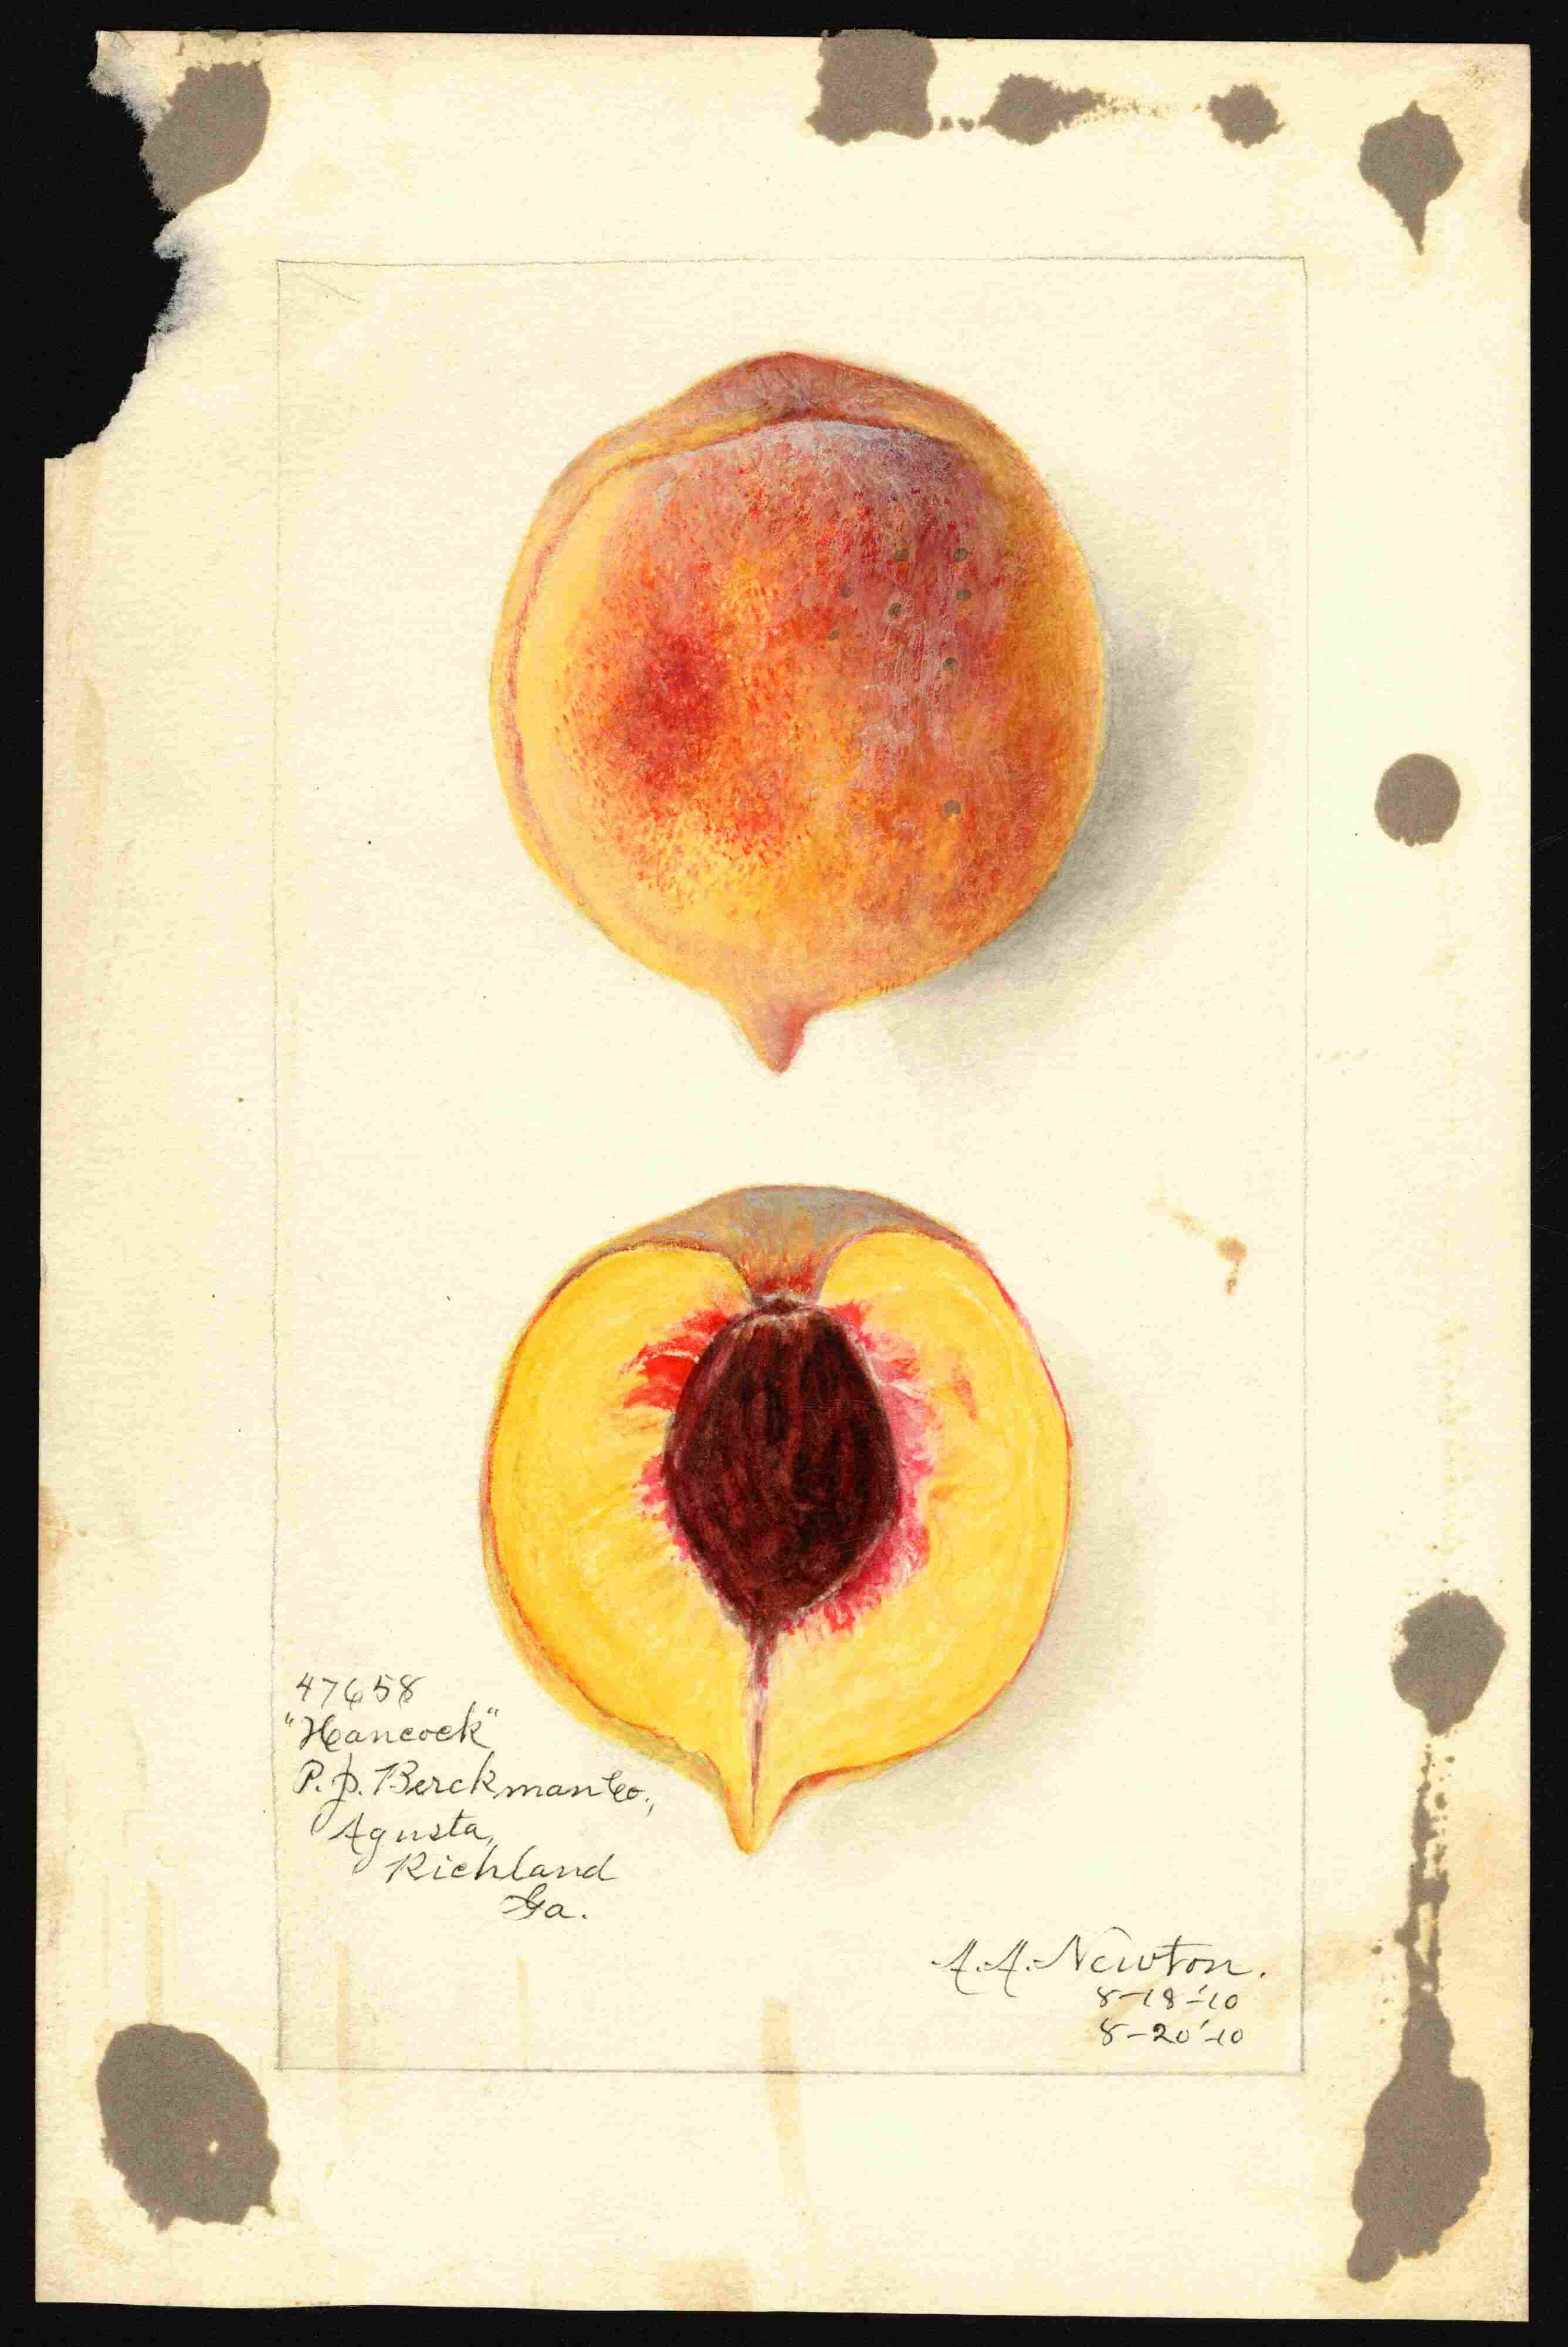 47658
"Hancock"
P. J. Berckman Co.,
Agusta,
Richland
Ga.
A. A. Newton.
8-18-'10
8-20'-10